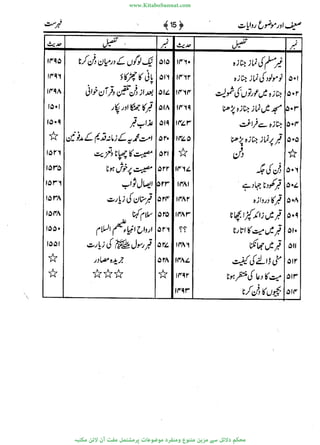 www.KitaboSunnat.com
ضعیف اور موضوع روایات ﴿ 15 ﴾ فہرست
نمبر تفصیل حدیث نمبر تفصیل حدیث
غیر مسلم کی نماز جنازہ ۱۴۶۰ ۵۱۵ نیک لوگوں کے درمیان دفن کرنا ۱۴۹۵
۵۰۱ نومولود کی نماز جنازہ ۱۴۶۲ ۵۱۶ پانی کا چھڑکاؤ ۱۴۹۶
۵۰۲ جنازہ میں عورتوں کی شمولیت ۱۴۶۴ ۵۱۷ بعد از دفن تلقین وقرآن خوانی ۱۴۹۸
۵۰۳ مسجد میں نماز جنازہ پڑھنا ۱۴۶۹ ۵۱۸ قبر کا جھٹکا اور پکار ۱۵۰۱
۵۰۴ جنازہ سے فراغت ۱۴۷۳ ۵۱۹ عذاب قبر ۱۵۰۹
۵۰۵ قبر پر نماز جنازہ پڑھنا ۱۴۷۵ ۵۲۰ امت محمدیہ کے زمانہ قدیم کے مدفونین ☆
☆ دفن ☆ ۵۲۱ مصیبت کا چھپانا وتعزیت ۱۵۲۶
۵۰۶ دفن کی جگہ ۱۴۷۷ ۵۲۲ مصیبت پر خوش ہونا ۱۵۳۵
۵۰۷ قبر کھودنا جہاد ہے ۱۴۸۱ ۵۲۳ ایصال ثواب ۱۵۳۶
۵۰۸ قبر کا دروازہ ۱۴۸۲ ۵۲۴ قبرستان کی زیارت ۱۵۳۸
۵۰۹ قبر میں زائد کپڑا بچھانا ۱۴۸۳ ۵۲۵ سلام کہنا ۱۵۴۸
۵۱۰ قبر میں میت کا اتارنا ؟؟ ۵۲۶ ارواح انبیاء علیہم السلام ۱۵۵۰
۵۱۱ قبر میں جھانکنا ۱۴۸۶ ۵۲۷ قبر رسول ﷺ کی زیارت ۱۵۵۱
۵۱۲ مٹی ڈالنے کی کیفیت ۱۴۸۷ ☆ جریدہ مصادر ☆
۵۱۳ میت کا دعا کی منتظر ہونا ۱۴۹۲ ☆ ☆ ☆ ☆ ☆
۵۱۴ بچیوں کا دفن کرنا ۱۴۹۳
محکم دلائل سے مزین متنوع ومنفرد موضوعات پرمشتمل مفت آن لائن مکتبہ